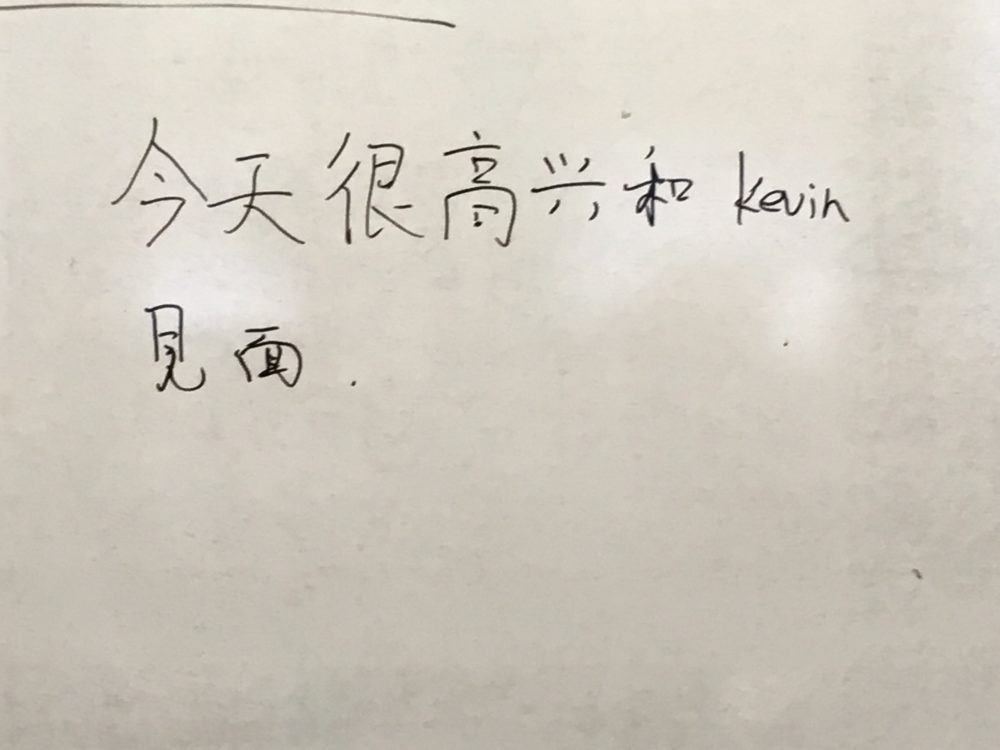 今天很高兴和 kevin
見面.